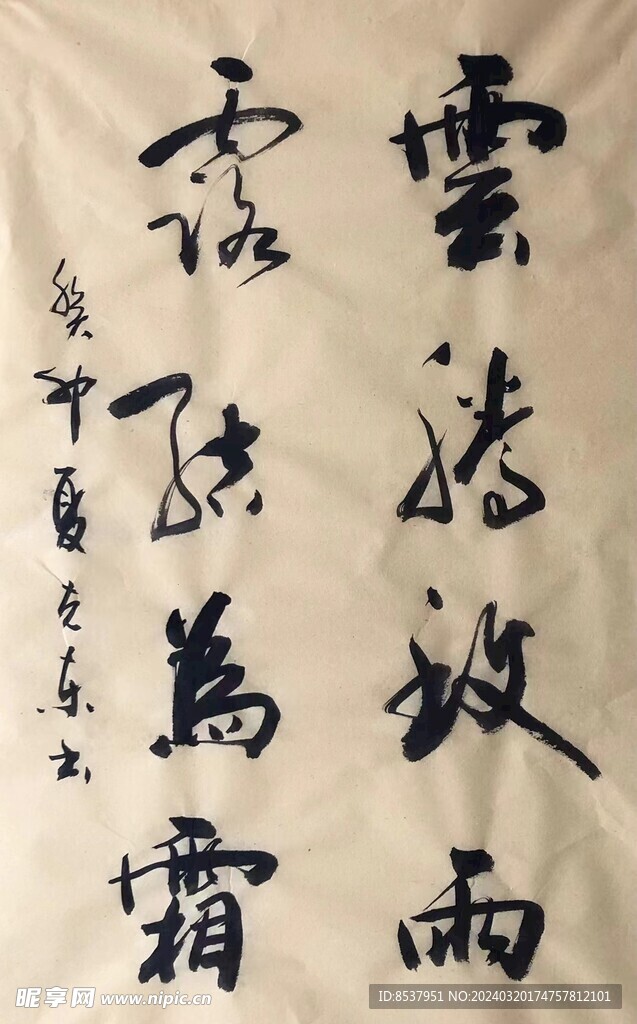 雲騰致雨
露結為霜
癸卯夏克东书
昵享网 www.nipic.cn
ID:8537951 NO:20240320174757812101